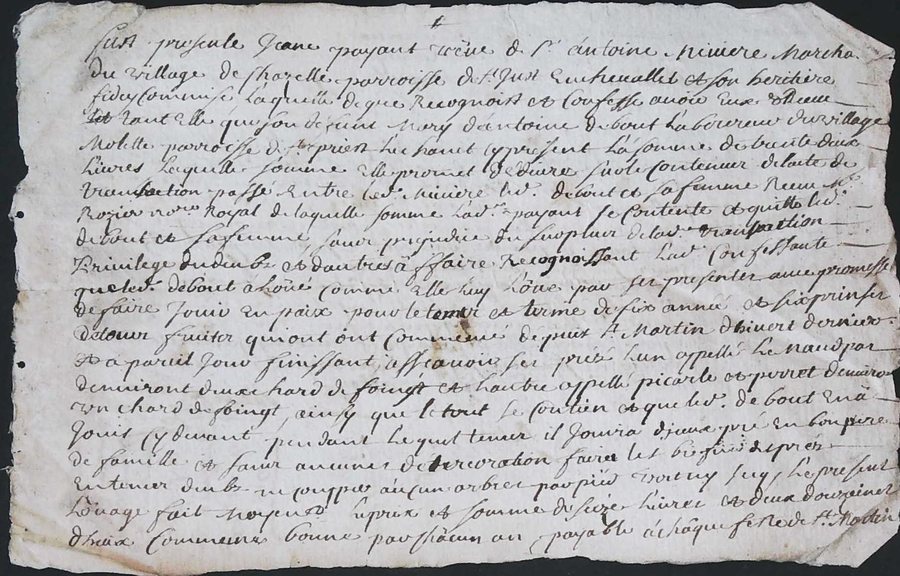 fust presente Jeane payant veuve de Sr antoine Riviere Marcha
du village de Chazelle parroisse de St Just Enchevallet et son heritiere
fideycommise laquelle de gre Recognoist et Confesse avoir Eux
et tant Elle que son deffunt Mary d'antoine debout Laboureur du village
Molette parroisse de St priest La
livres laquelle somme Elle promet deduire sur le Contenu de lacte de
transaction passé Entre led. Riviere led. debout et sa femme Receu Me
Rozier no.re Royal de laquelle somme lad. payant se Contente et quitte led.
debout et sa femme sans prejudice du surplus de lad. transaction
privilege du et dautres affaire Recognoissant lad. Confessante
que led. debout a Loué comme Elle luy Loüe par ses presentes avec promesse
de faire Jouir En paix pour le temps et terme de six année et six prinses
de tous fruitcs qui ont ont Commencé depuis St Martin dhivert dernier
Et a pareil Jour finissant assçavoir ses prés Lun appellé Le
denviront deux chard de foingt et lautre appellé picarle et denviron
un chard de foingt, ainsy que le tout se Contien et que led. debout En a
Jouis cy devant, pendant lequel temps il Jouira deux pré En bon pere
de famille et sans aucunes deterioration faire les
En temps deub ny coupper aucun arbres par pied Le present
Loüage fait moyenant le prix et somme de livres et deux douzaines
deux Commune bonne par châcun an payable a châque feste de St Martin